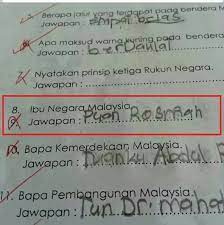 Berapa jalur yang terdapat pada bendera M
Jawapan : empat belas
Apa maksud warna kuning pada bendera
Jawapan : berDaulat
7. Nyatakan prinsip ketiga Rukun Negara.
Jawapan :
8. Ibu Negara Malaysia.
9. Jawapan : Puan Rosmah
10. Bapa Kemerdekaan Malaysia.
Jawapan : Tunku Abdul R
11. Bapa Pembangunan Malaysia.
Jawapan : Tun Dr. mahat